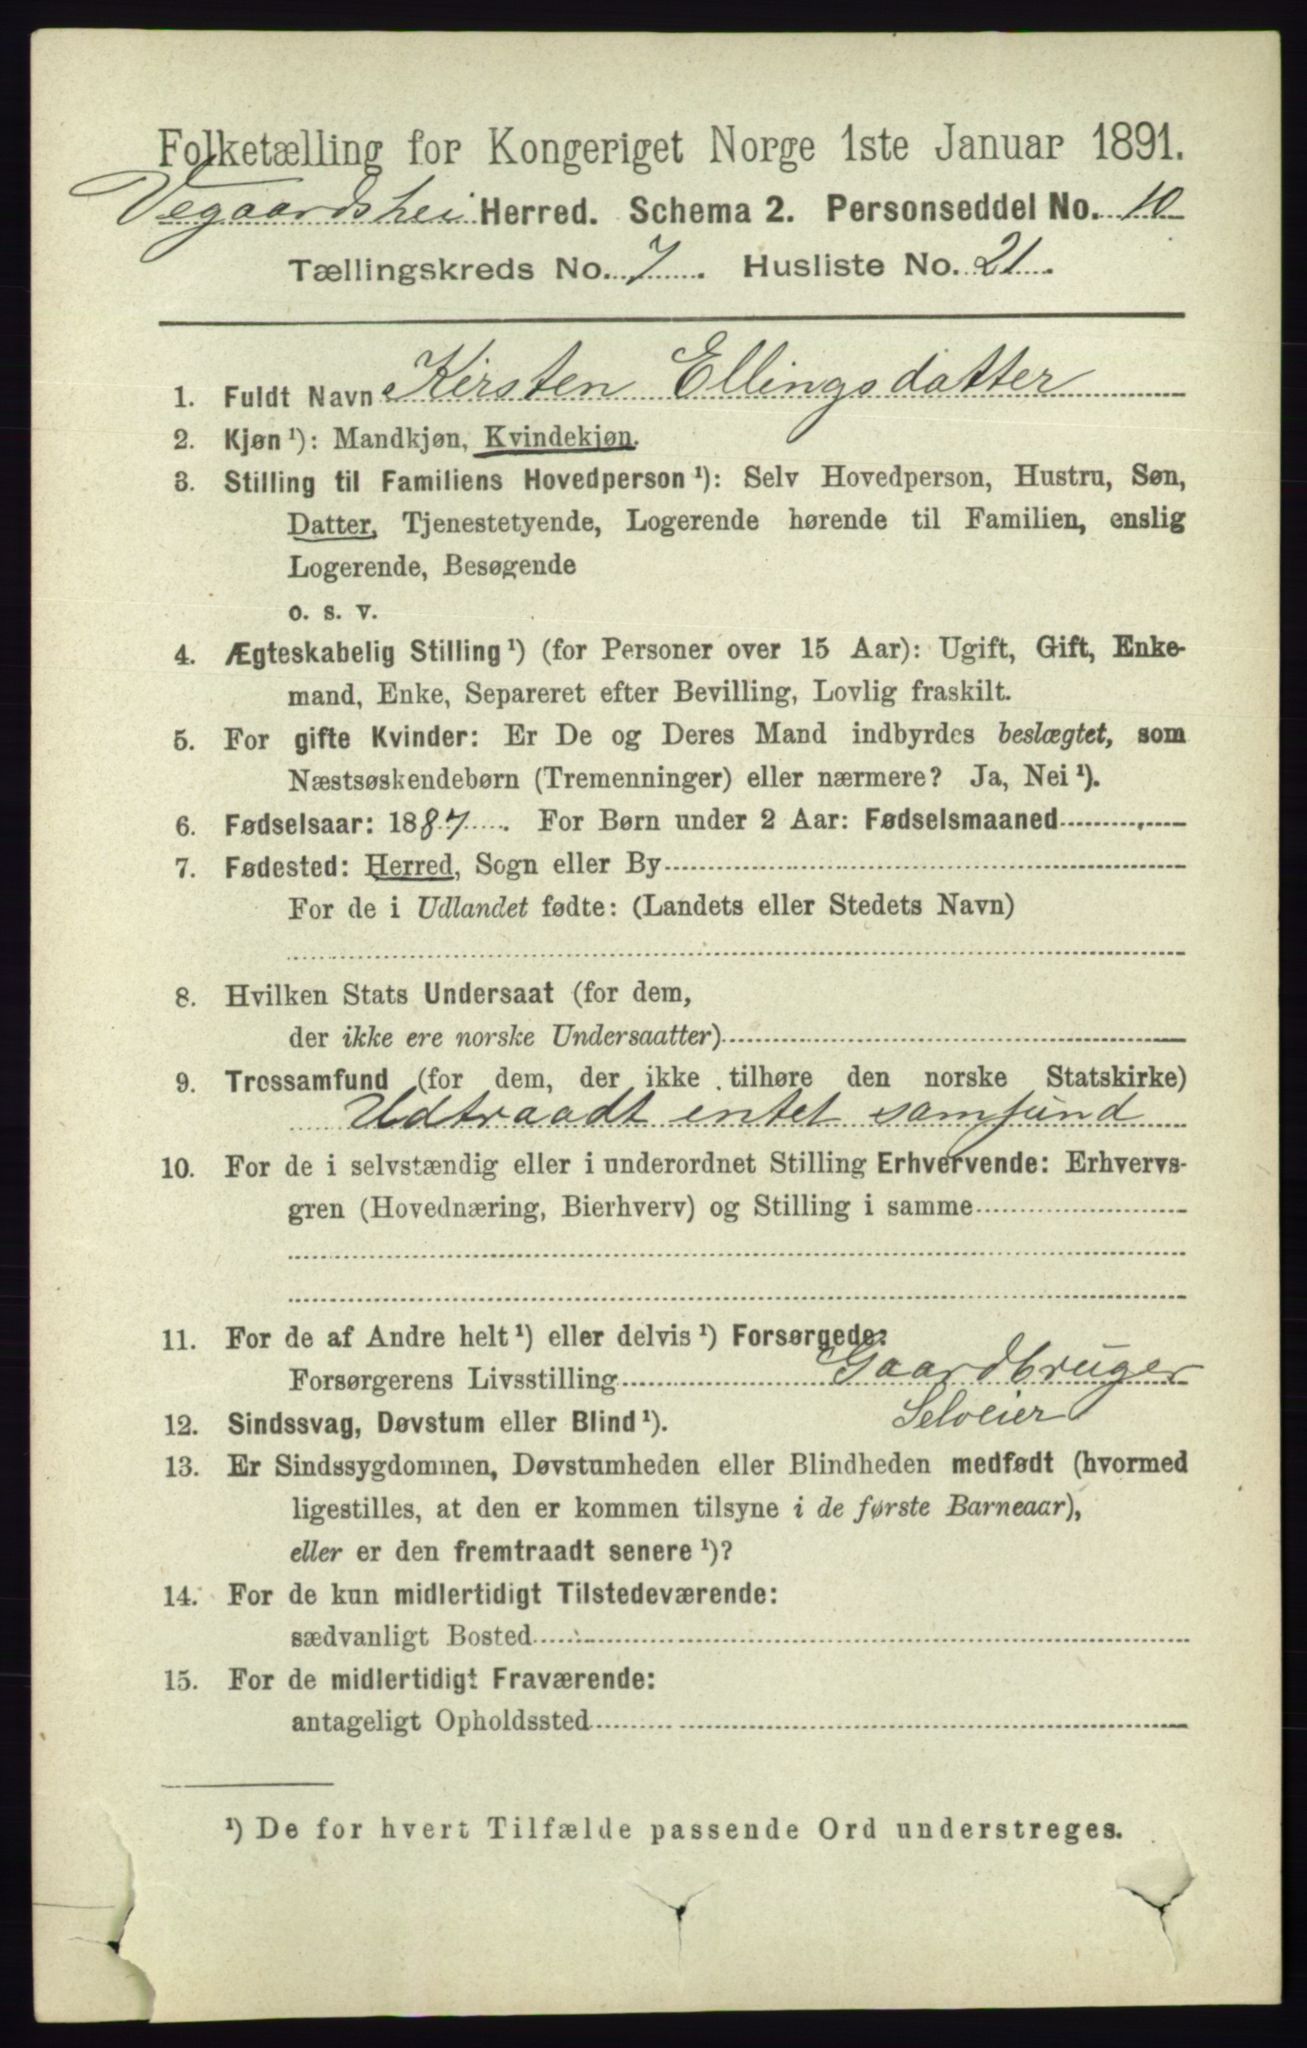 Folketælling for Kongeriget Norge 1ste Januar 1891.
Vegaardshei Herred. Schema 2. Personseddel No. 10
Tællingskreds No. 7. Husliste No. 21.
1. Fuldt Navn Kirsten Ellingsdatter
2. Kjøn ¹): Mandkjøn, Kvindekjøn.
3. Stilling til Familiens Hovedperson ¹): Selv Hovedperson, Hustru, Søn,
Datter, Tjenestetyende, Logerende hørende til Familien, enslig
Logerende, Besøgende
o. s. v.
4. Ægteskabelig Stilling ¹) (for Personer over 15 Aar): Ugift, Gift, Enke-
mand, Enke, Separeret efter Bevilling, Lovlig fraskilt.
5. For gifte Kvinder: Er De og Deres Mand indbyrdes beslægtet, som
Næstsøskendebørn (Tremenninger) eller nærmere? Ja, Nei ¹).
6. Fødselsaar: 1887. For Børn under 2 Aar: Fødselsmaaned
7. Fødested: Herred, Sogn eller By
For de i Udlandet fødte: (Landets eller Stedets Navn)
8. Hvilken Stats Undersaat (for dem,
der ikke ere norske Undersaatter)
9. Trossamfund (for dem, der ikke tilhøre den norske Statskirke)
Udtraadt entet samfund
10. For de i selvstændig eller i underordnet Stilling Erhvervende: Erhvervs-
gren (Hovednæring, Bierhverv) og Stilling i samme
11. For de af Andre helt ¹) eller delvis ¹) Forsørgede:
Forsørgerens Livsstilling Gaardbruger
Selveier
12. Sindssvag, Døvstum eller Blind ¹).
13. Er Sindssygdommen, Døvstumheden eller Blindheden medfødt (hvormed
ligestilles, at den er kommen tilsyne i de første Barneaar),
eller er den fremtraadt senere ¹)?
14. For de kun midlertidigt Tilstedeværende:
sædvanligt Bosted
15. For de midlertidigt Fraværende:
antageligt Opholdssted
¹) De for hvert Tilfælde passende Ord understreges.